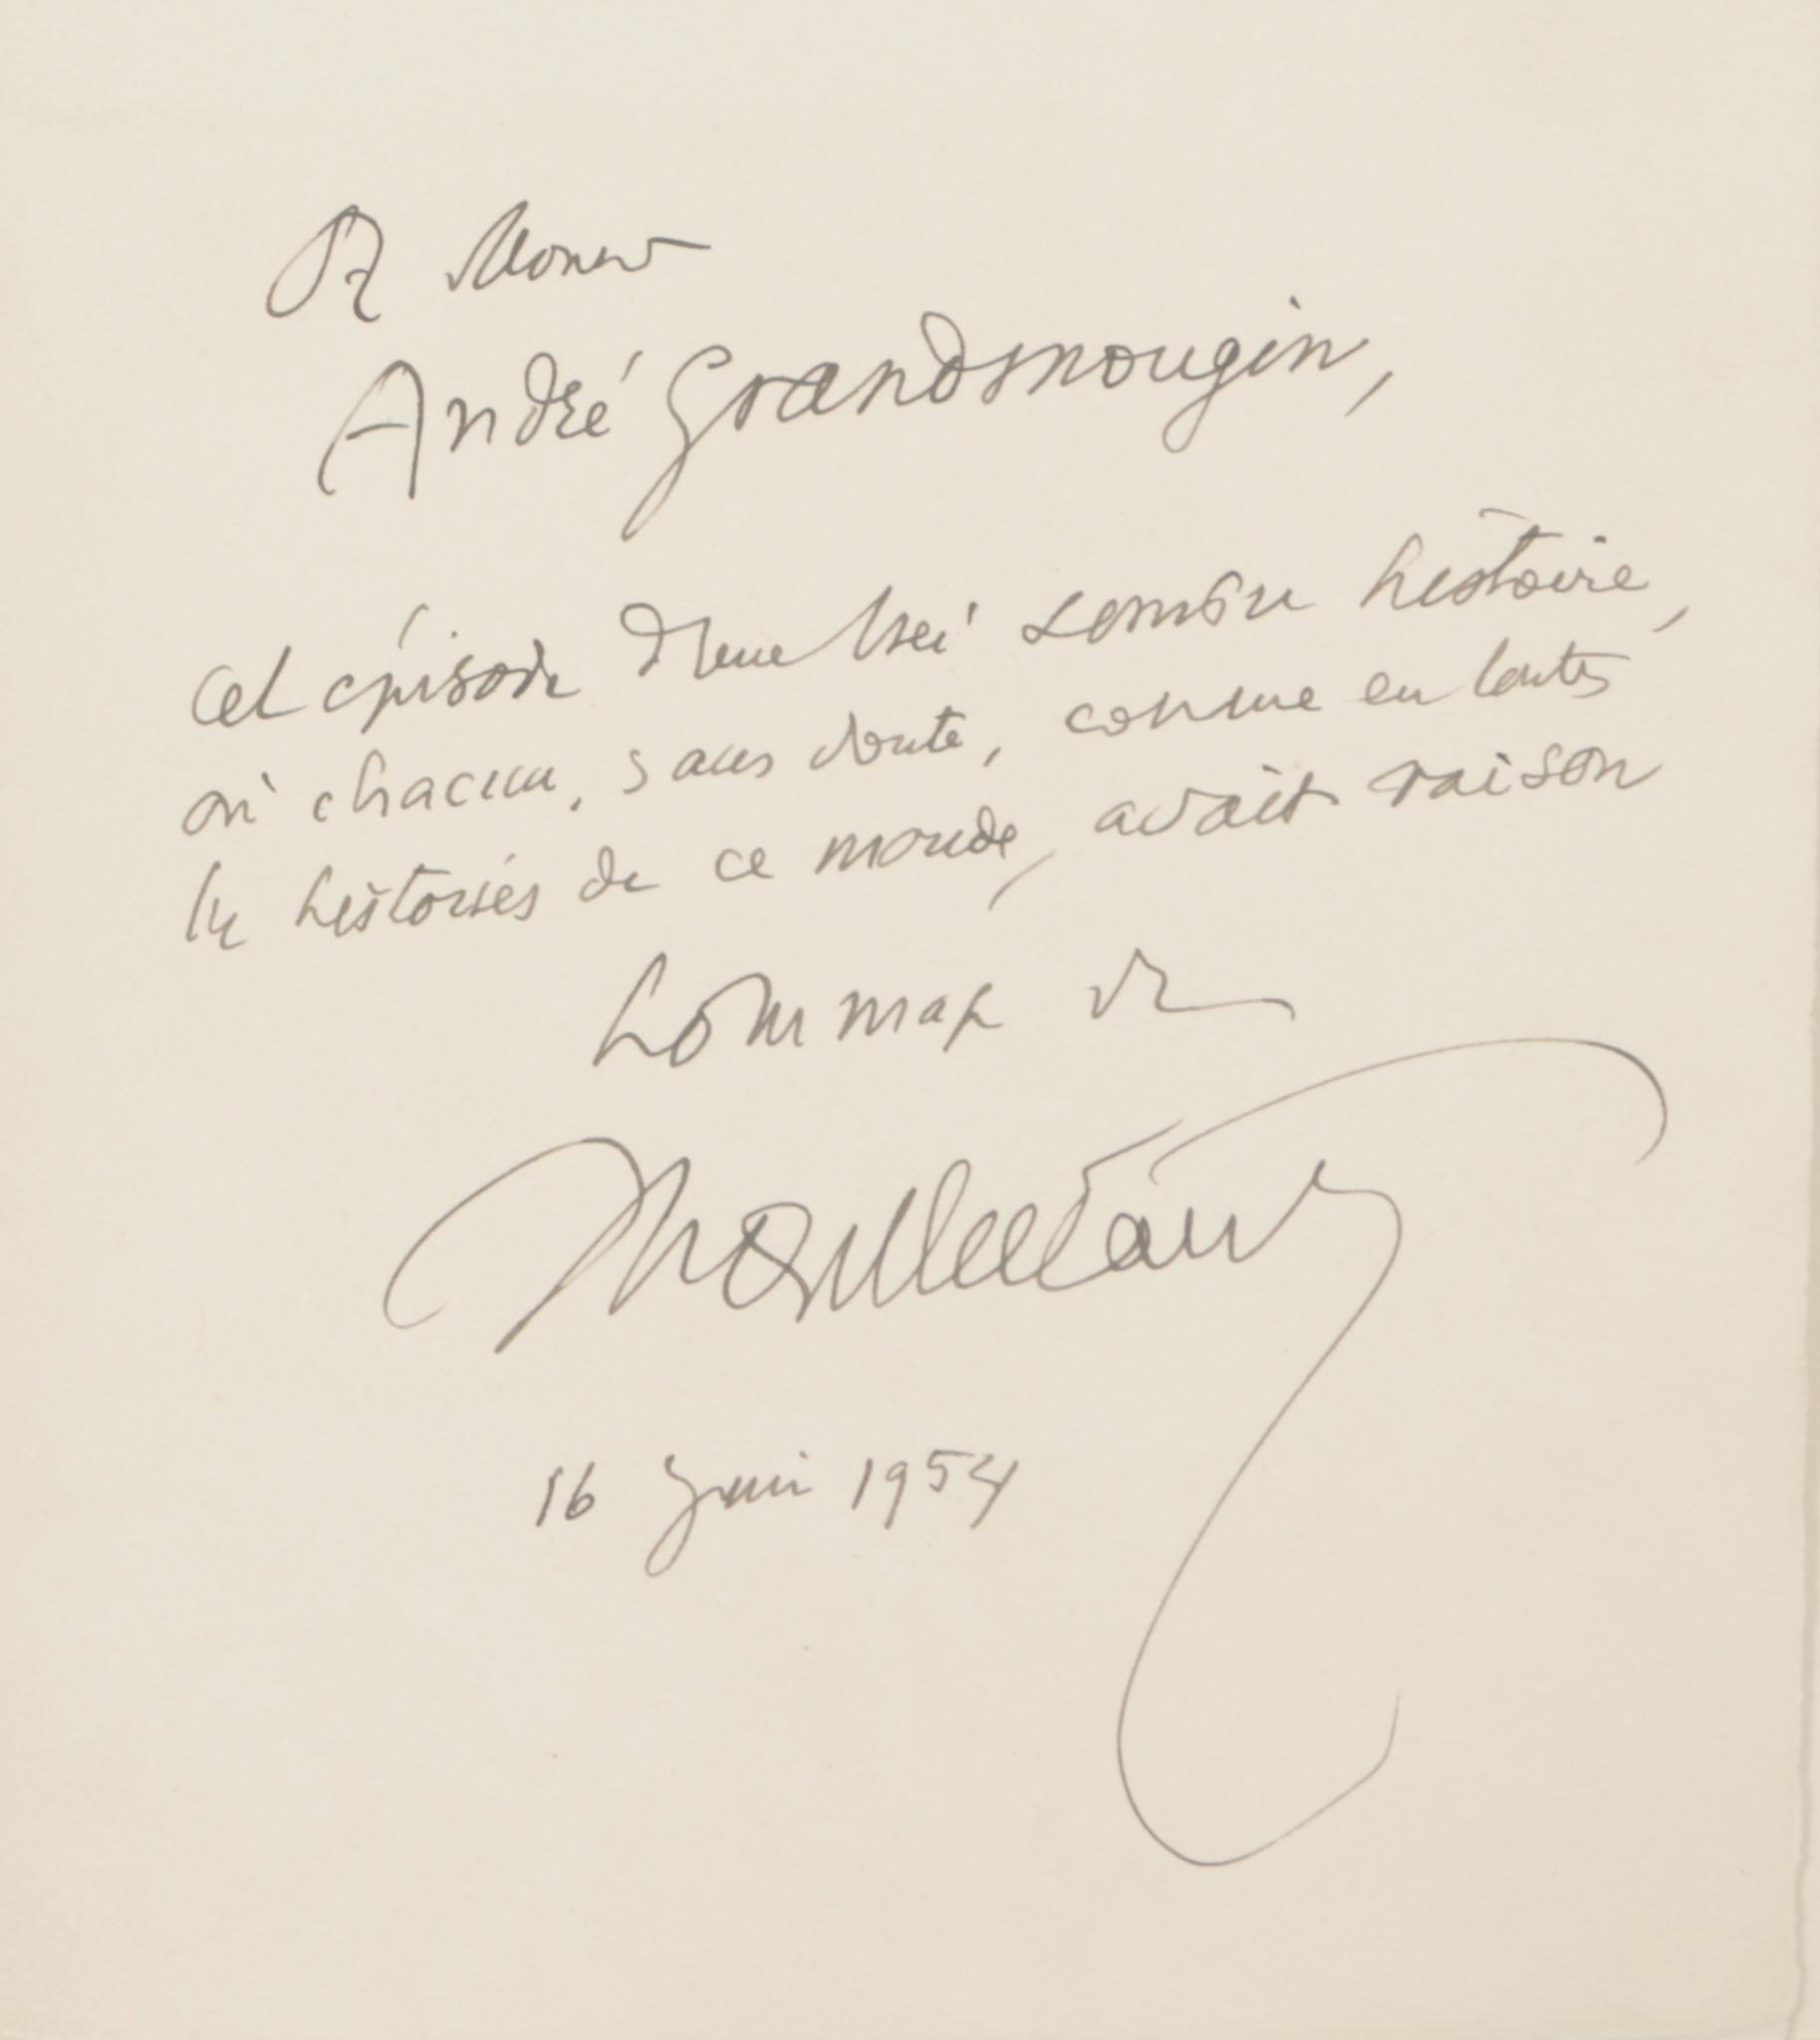 A Monsieur
André Grandmougin,
cet épisode d'une très sombre histoire,
où chacun, sans doute, comme en toutes
les histoires de ce monde, avait raison
hommage de
Montherlant
16 Juin 1954